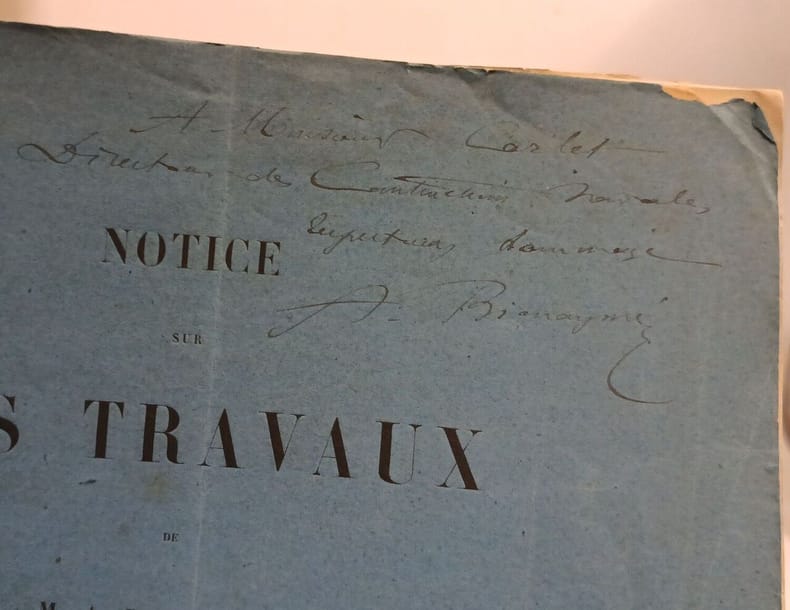 A Monsieur Carlet
Directeur des Constructions Navales
respectueux hommage
A. Bienaymé
NOTICE
SUR
S TRAVAUX
DE
M. A.